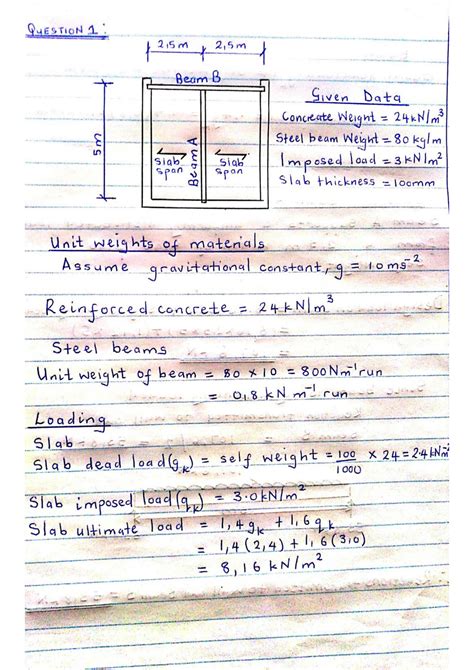 QUESTION 1:
2,5m 2,5m
Beam B
5m
Slab span
Beam A
Slab span
Given Data
Concreate Weight = 24kN/m³
Steel beam Weight = 80 kg/m
Imposed load = 3kN/m²
Slab thickness = 100mm
Unit weights of materials
Assume gravitational constant, g = 10ms⁻²
Reinforced concrete = 24kN/m³
Steel beams
Unit weight of beam = 80 × 10 = 800Nm⁻¹run
= 0,8 kN m⁻¹ run
Loading
Slab
Slab dead load(gk) = self weight = 100/1000 × 24 = 2.4kN/m
Slab imposed load(qk) = 3.0kN/m²
Slab ultimate load = 1,4gk + 1,6qk
= 1,4(2,4) + 1,6(3,0)
= 8,16 kN/m²